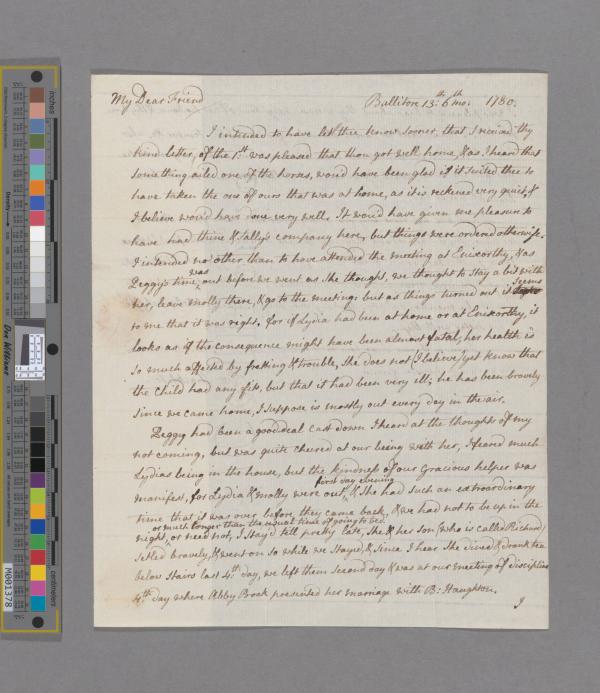 My Dear Friend
Ballitore 13th: 6th mo: 1780.
I intended to have let thee know sooner, that I received thy
kind letter, of the 1st. was pleased that thou got well home, & as I heard that
something ailed one of the horses, would have been glad if it suited thee to
have taken the one of ours that was at home, as it is reckened very quiet, &
I believe would have done very well. It would have given me pleasure to
have had thine & Sally's company here, but things were ordered otherwise.
I intended no other than to have attended the meeting at Eniscorthy, & as
Peggy's time was out before we went as she thought, we thought to stay a bit with
her, leave Molly there, & go to the meeting: but as things turned out it seems
to me that it was right. for if Lydia had been at home or at Eniscorthy, it
looks as if the consequence might have been almost fatal, her health is
so much affected by fretting & trouble, she does not (I believe) yet know that
the child had any fits, but that it had been very ill; he has been bravely
since we came home, I suppose is mostly out every day in the air.
Peggy had been a good deal cast down I heard at the thoughts of my
not coming, but was quite cheered at our being with her, I feared much
Lydias being in the house, but the kindness of our Gracious helper was
manifest, for Lydia & Molly were out, first day evening & she had such an extraordinary
time that it was over before they came back, & we had not to be up in the
night, or need not, or much longer than the usual time of going to bed. I stay'd till pretty late, She & her son (who is called Richard)
setled bravely, & went on so while we stayed, & since I hear she dined & drank tea
below stairs last 4th day, we left them second day & was at our meeting of discipline
4th day where Abby Brook presented her marriage with B: Haughton.
I
inches
centimetres
Density
Don Williams
M001378